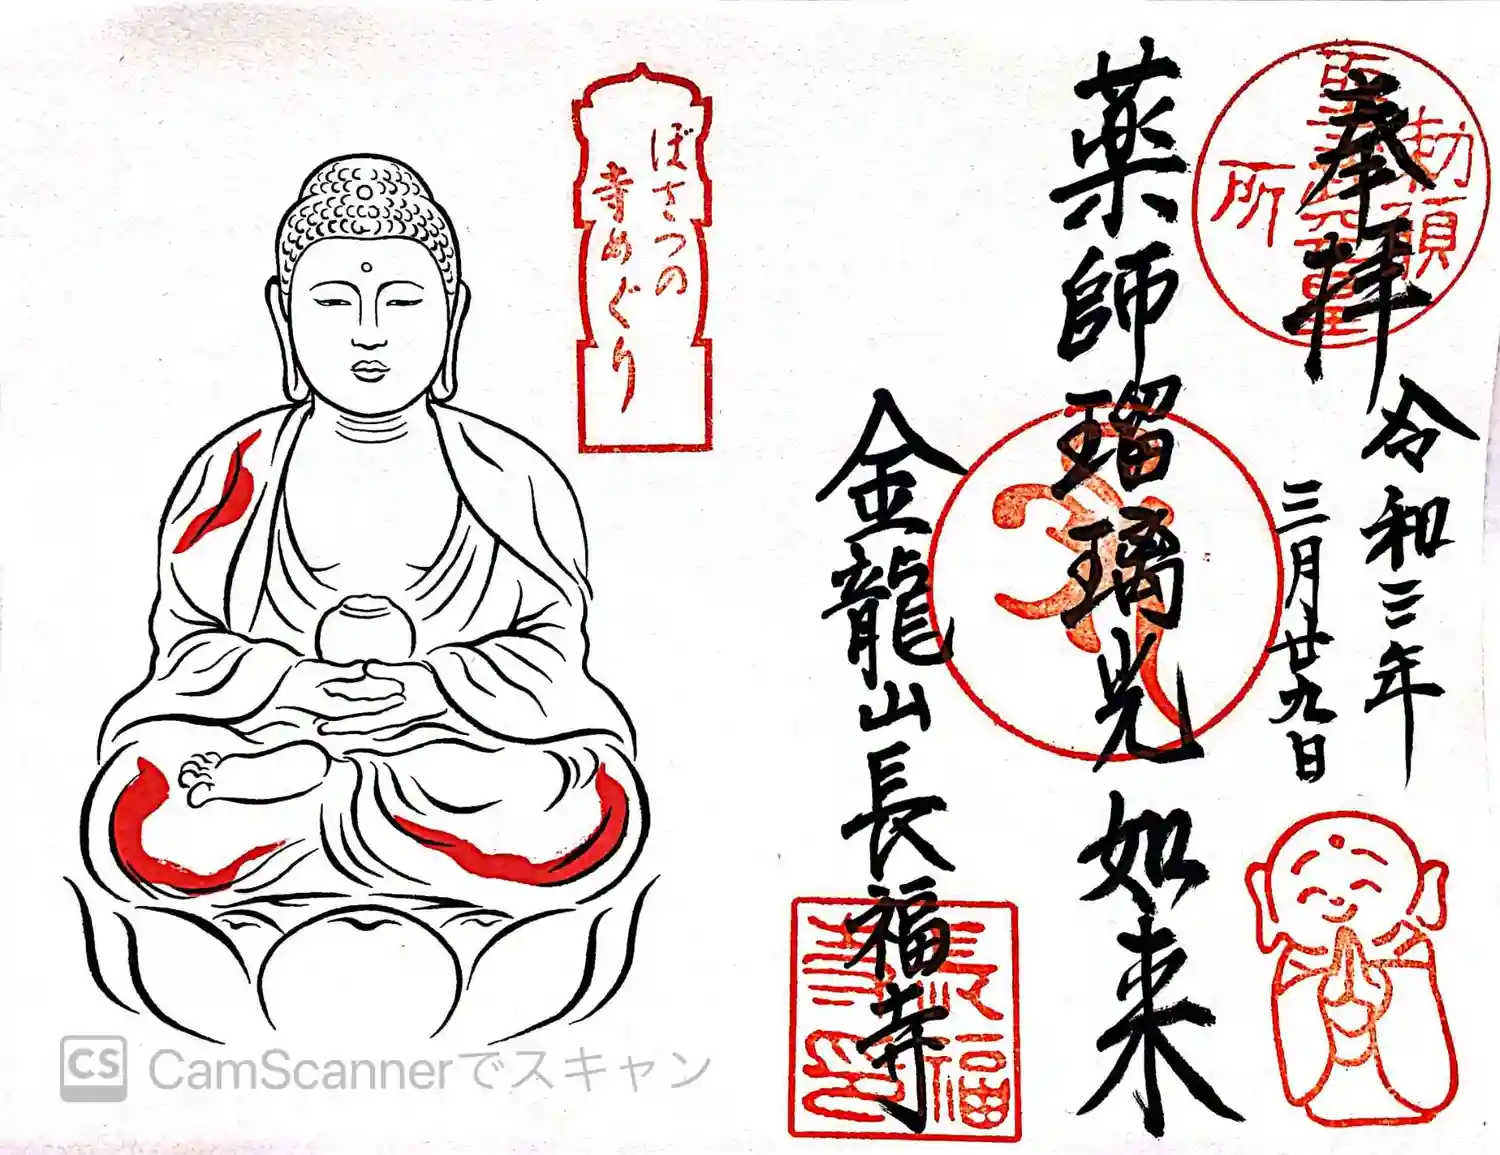 奉拝
令和三年
三月廿九日
薬師瑠璃光如来
金龍山長福寺
ぼさつの
寺めぐり
長福
CS CamScannerでスキャン